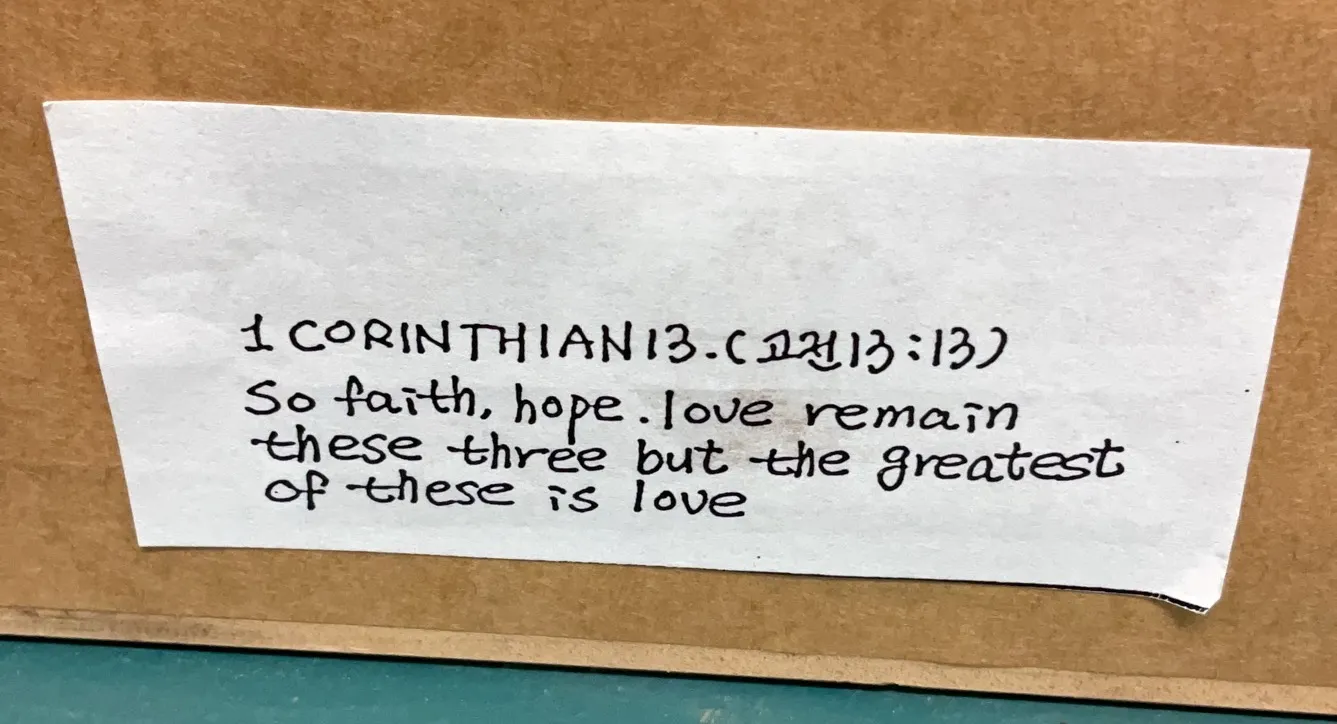 1 CORINTHIAN 13. (고전13:13)
So faith, hope. love remain
these three but the greatest
of these is love